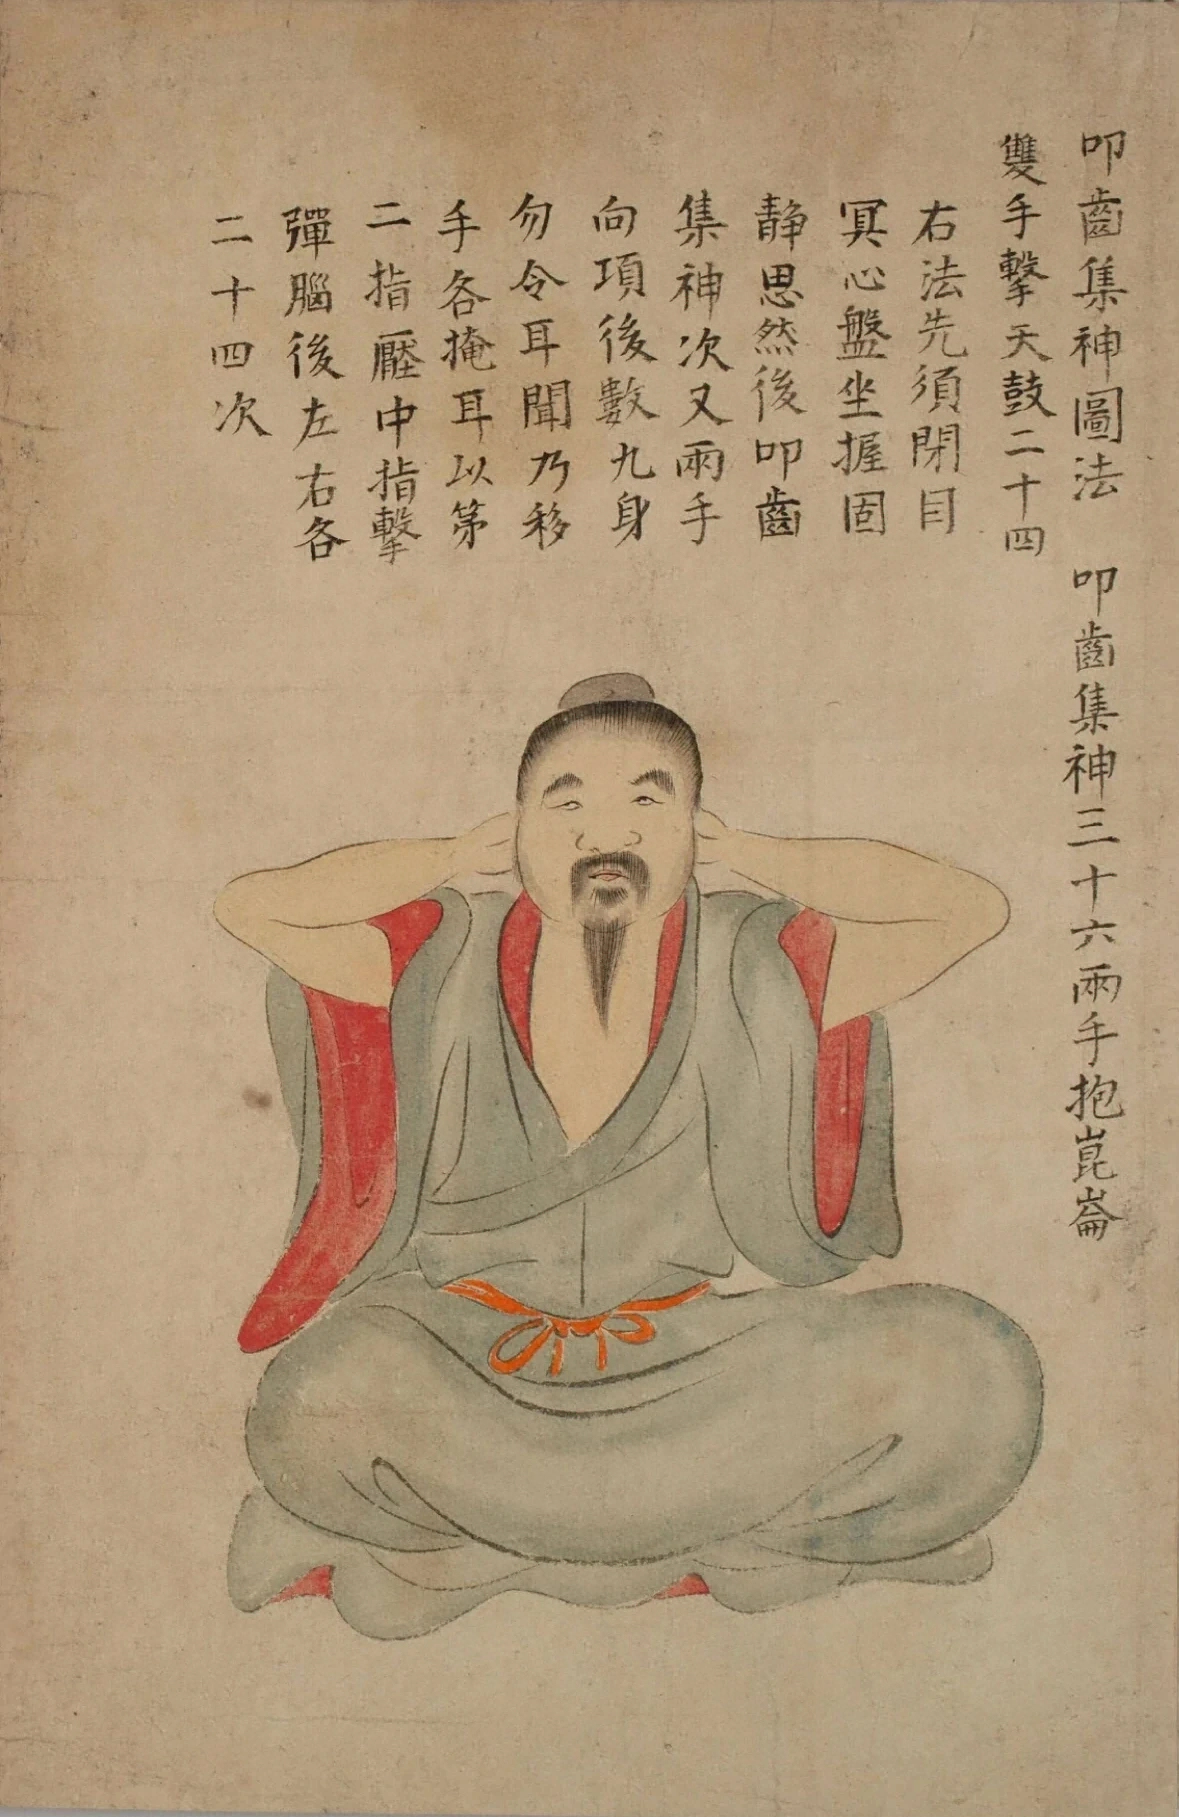 叩齒集神圖法 叩齒集神三十六兩手抱崑崙
雙手擊天鼓二十四
右法先須閉目
冥心盤坐握固
靜思然後叩齒
集神次叉兩手
向項後數九身
勿令耳聞乃移
手各掩耳以第
二指壓中指擊
彈腦後左右各
二十四次